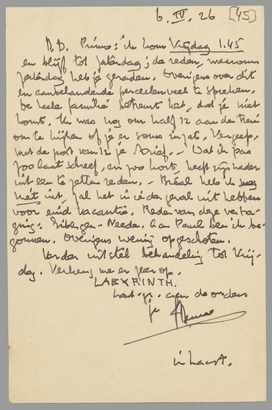 6. IV. 26 [45]
N.D. Primo: ik kom Vrijdag 1.45
en blijf tot Zaterdag; de reden, waarom
Zaterdag heb je geraden. Overigens over dit
en aanbelandende perceelen veel te spreken.
De heele familie betreurt het, dat je niet
komt. Ik was nog om half 12 aan de trein
om te kijken of je er soms in zat. Vergeefs,
met de post van 12 je brief. Dat ik pas
zoo laat schreef, en zoo kort, heeft zijn
uit een te zetten reden. Bréal heb ik nog
niet uit, zal het in ieder geval uit hebben
voor eind vacantie. Reden van deze vertra-
ging: Eibergen-Neede. Aan Paul ben ik be-
gonnen. Overigens weinig opgeschoten.
Verder uitstel behandeling tot Vrij-
dag. Verheug me er zeer op.
LABYRINTH.
aan de ouders
je
in haast.